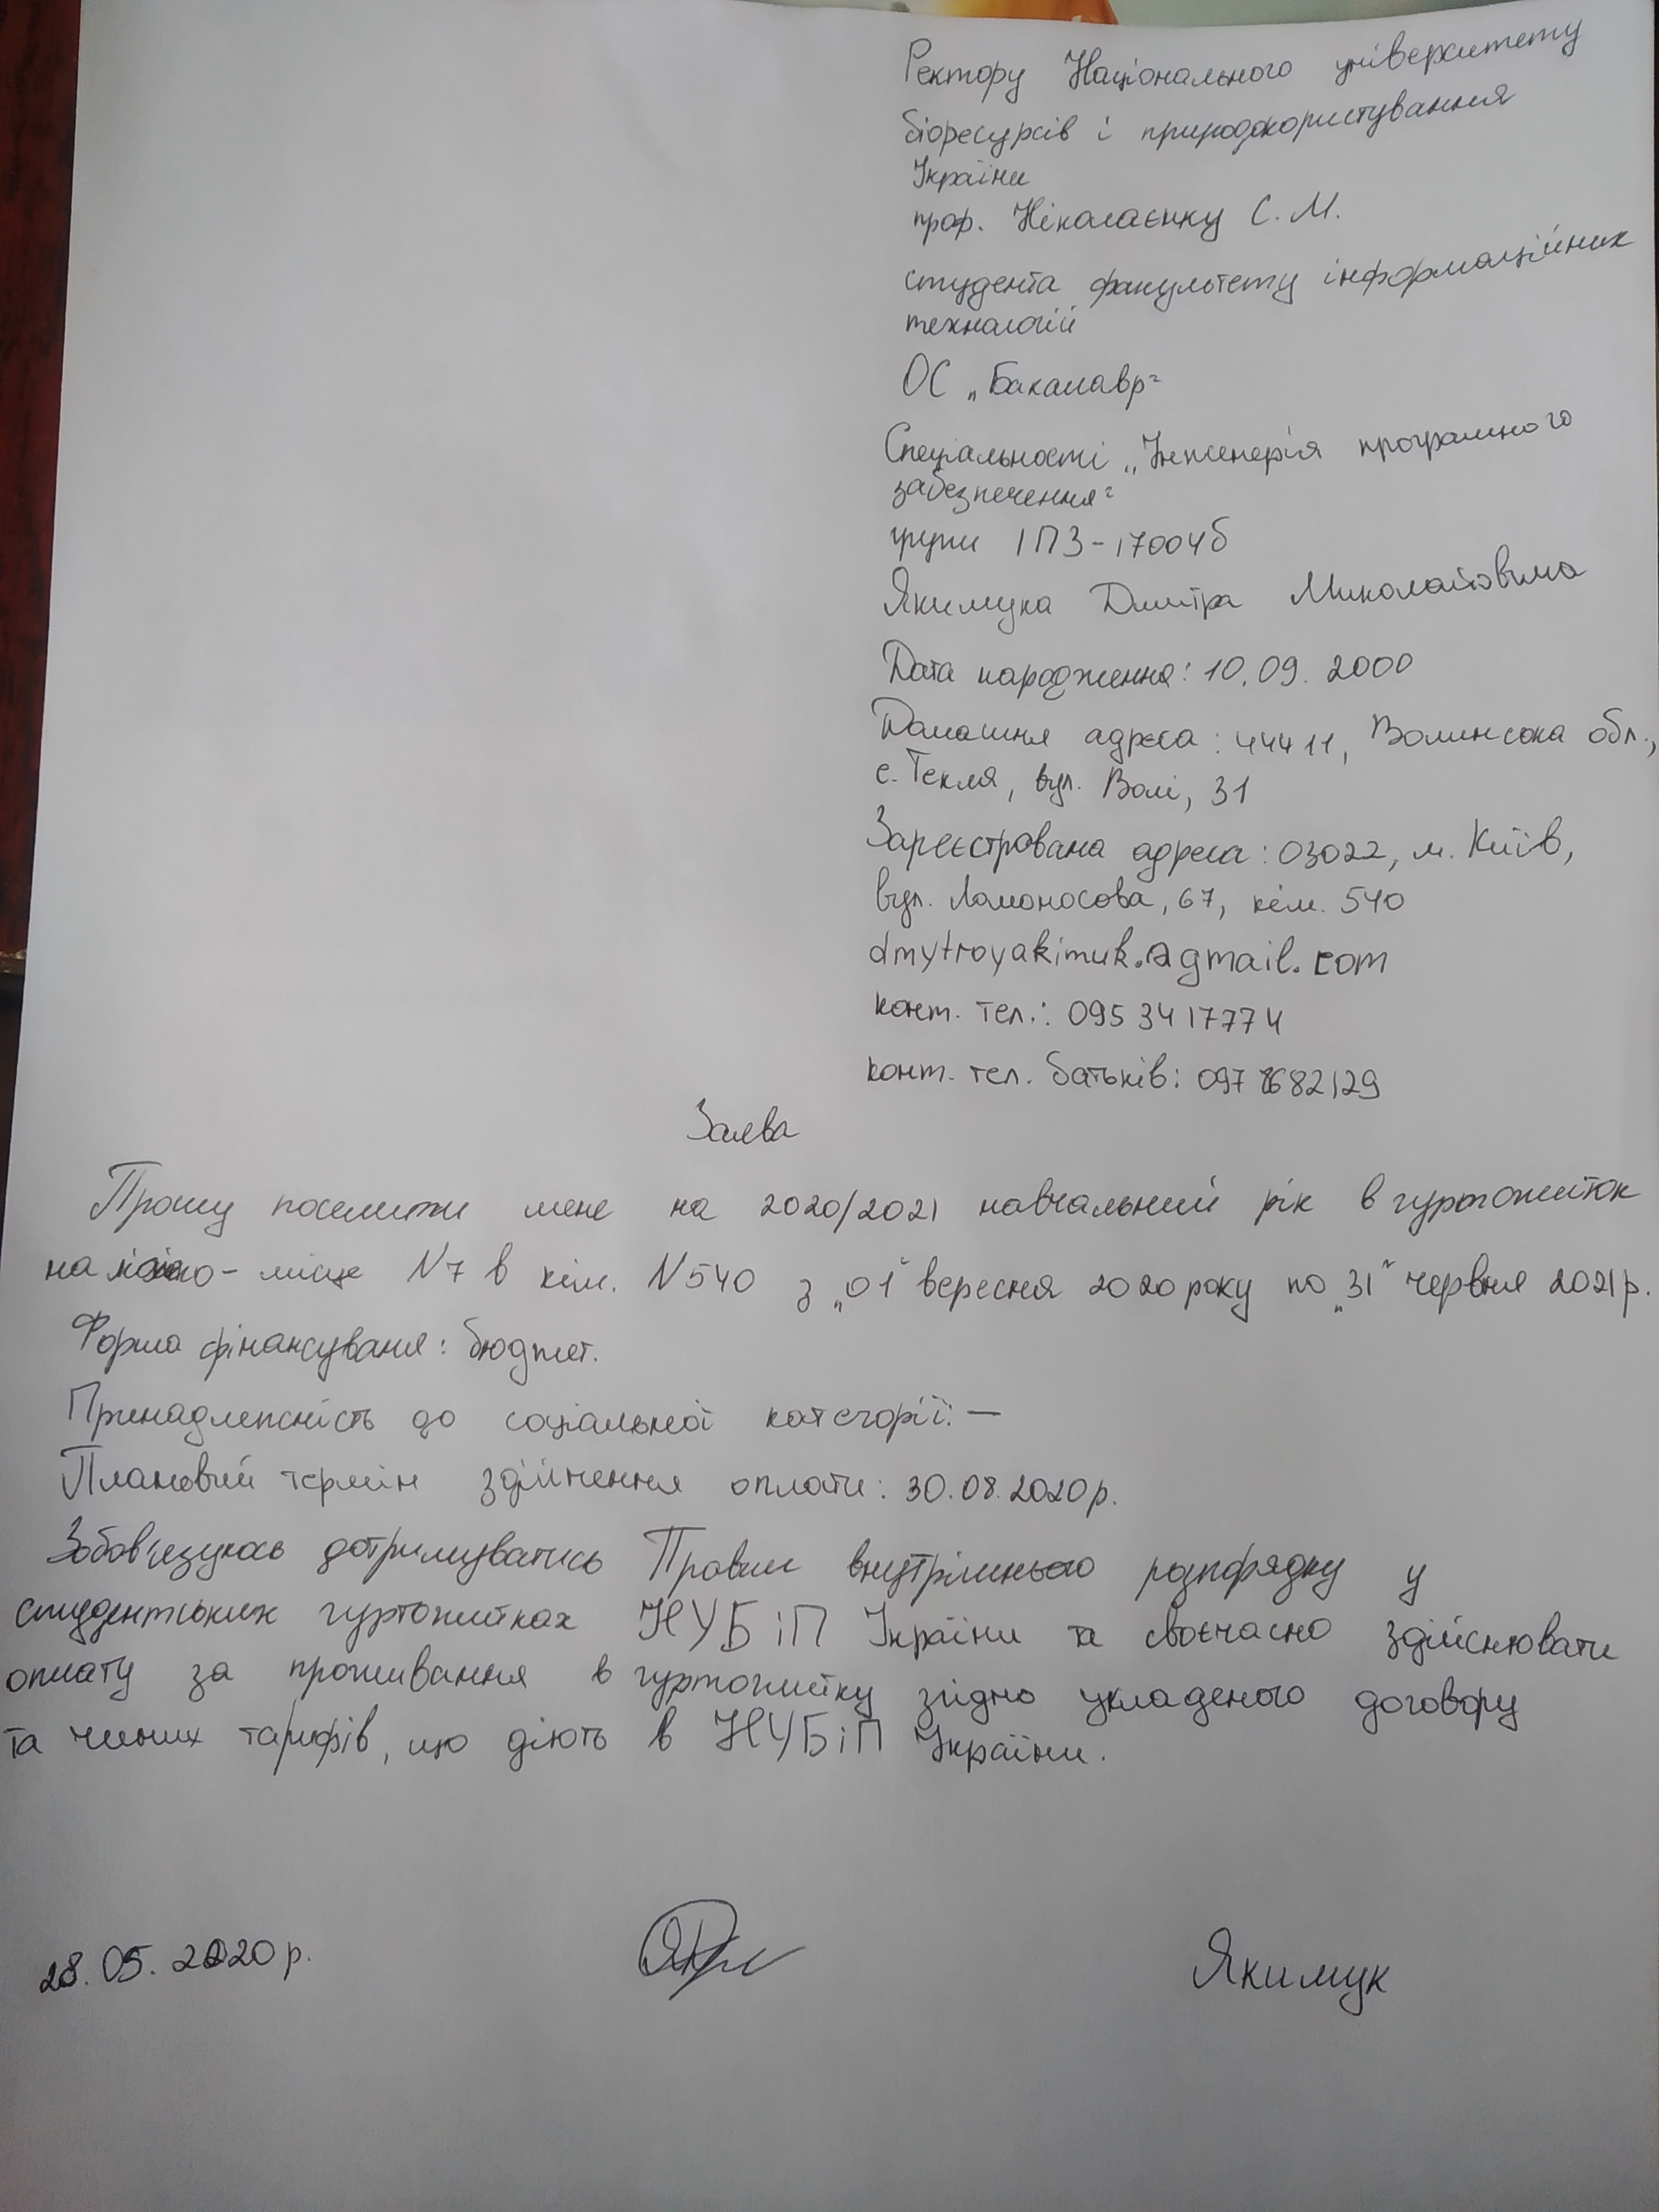 Ректору Національного університету
біоресурсів і природокористування
України
проф. Ніколаєнку С. М.
студента факультету інформаційних
технологій
ОС „Бакалавр"
Спеціальності „Інженерія програмного
забезпечення"
групи ІПЗ-17004б
Якимука Дмитра Миколайовича
Дата народження: 10.09.2000
Домашня адреса: 44411, Волинська обл.,
с. Текля, вул. Волі, 31
Зареєстрована адреса: 03022, м. Київ,
вул. Ломоносова, 67, кім. 540
dmytroyakimuk.@gmail.com
конт. тел.: 095 34 17774
конт. тел. батьків: 097
Заява
Прошу поселити мене на 2020/2021 навчальний рік в гуртожиток
на ліжко-місце N7 в кім. N540 з „01" вересня 2020 року по „31" червня 2021р.
Форма фінансуваня: бюджет.
Принадлежність до соціальної категорії: —
Плановий термін здійнення оплати: 30.08.2020р.
Зобов'язуюсь дотримуватись Правил внутрішнього розпорядку у
студентських гуртожитках НУБіП України та своєчасно здійснювати
оплату за проживання в гуртожитку згідно укладеного договору
та чиних тарифів, що діють в НУБіП України.
28.05.2020р.
Якимук